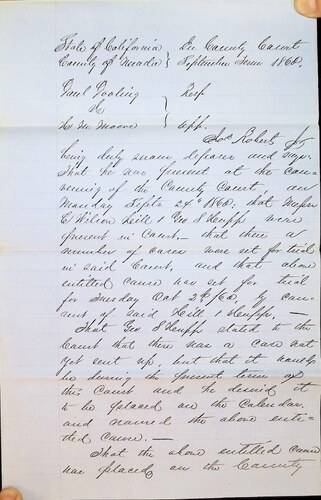 State of California } In County Court
County of Placer } September Term 1860.
Paul Dooling } Resp
vs
H. M. Moore } App.
Jos Roberts Jr
being duly sworn deposes and says
That he was present at the con-
vening of the County Court, on
Monday Septr 24th 1860, that Messrs
C Wilson Hill & Geo S Hupp were
present in Court - that there a
number of cases were set for trial
in said Court, and that above
entitled cause was set for trial
for Tuesday Oct 2nd/60, by con-
sent of said Hill & Hupp. -
That Geo S Hupp stated to the
Court that there was a case not
yet sent up, but that it would
be during the present term of
this Court and he desired it
to be placed on the Calendar.
and named the above enti-
tled cause. -
That the above entitled cause
was placed on the County